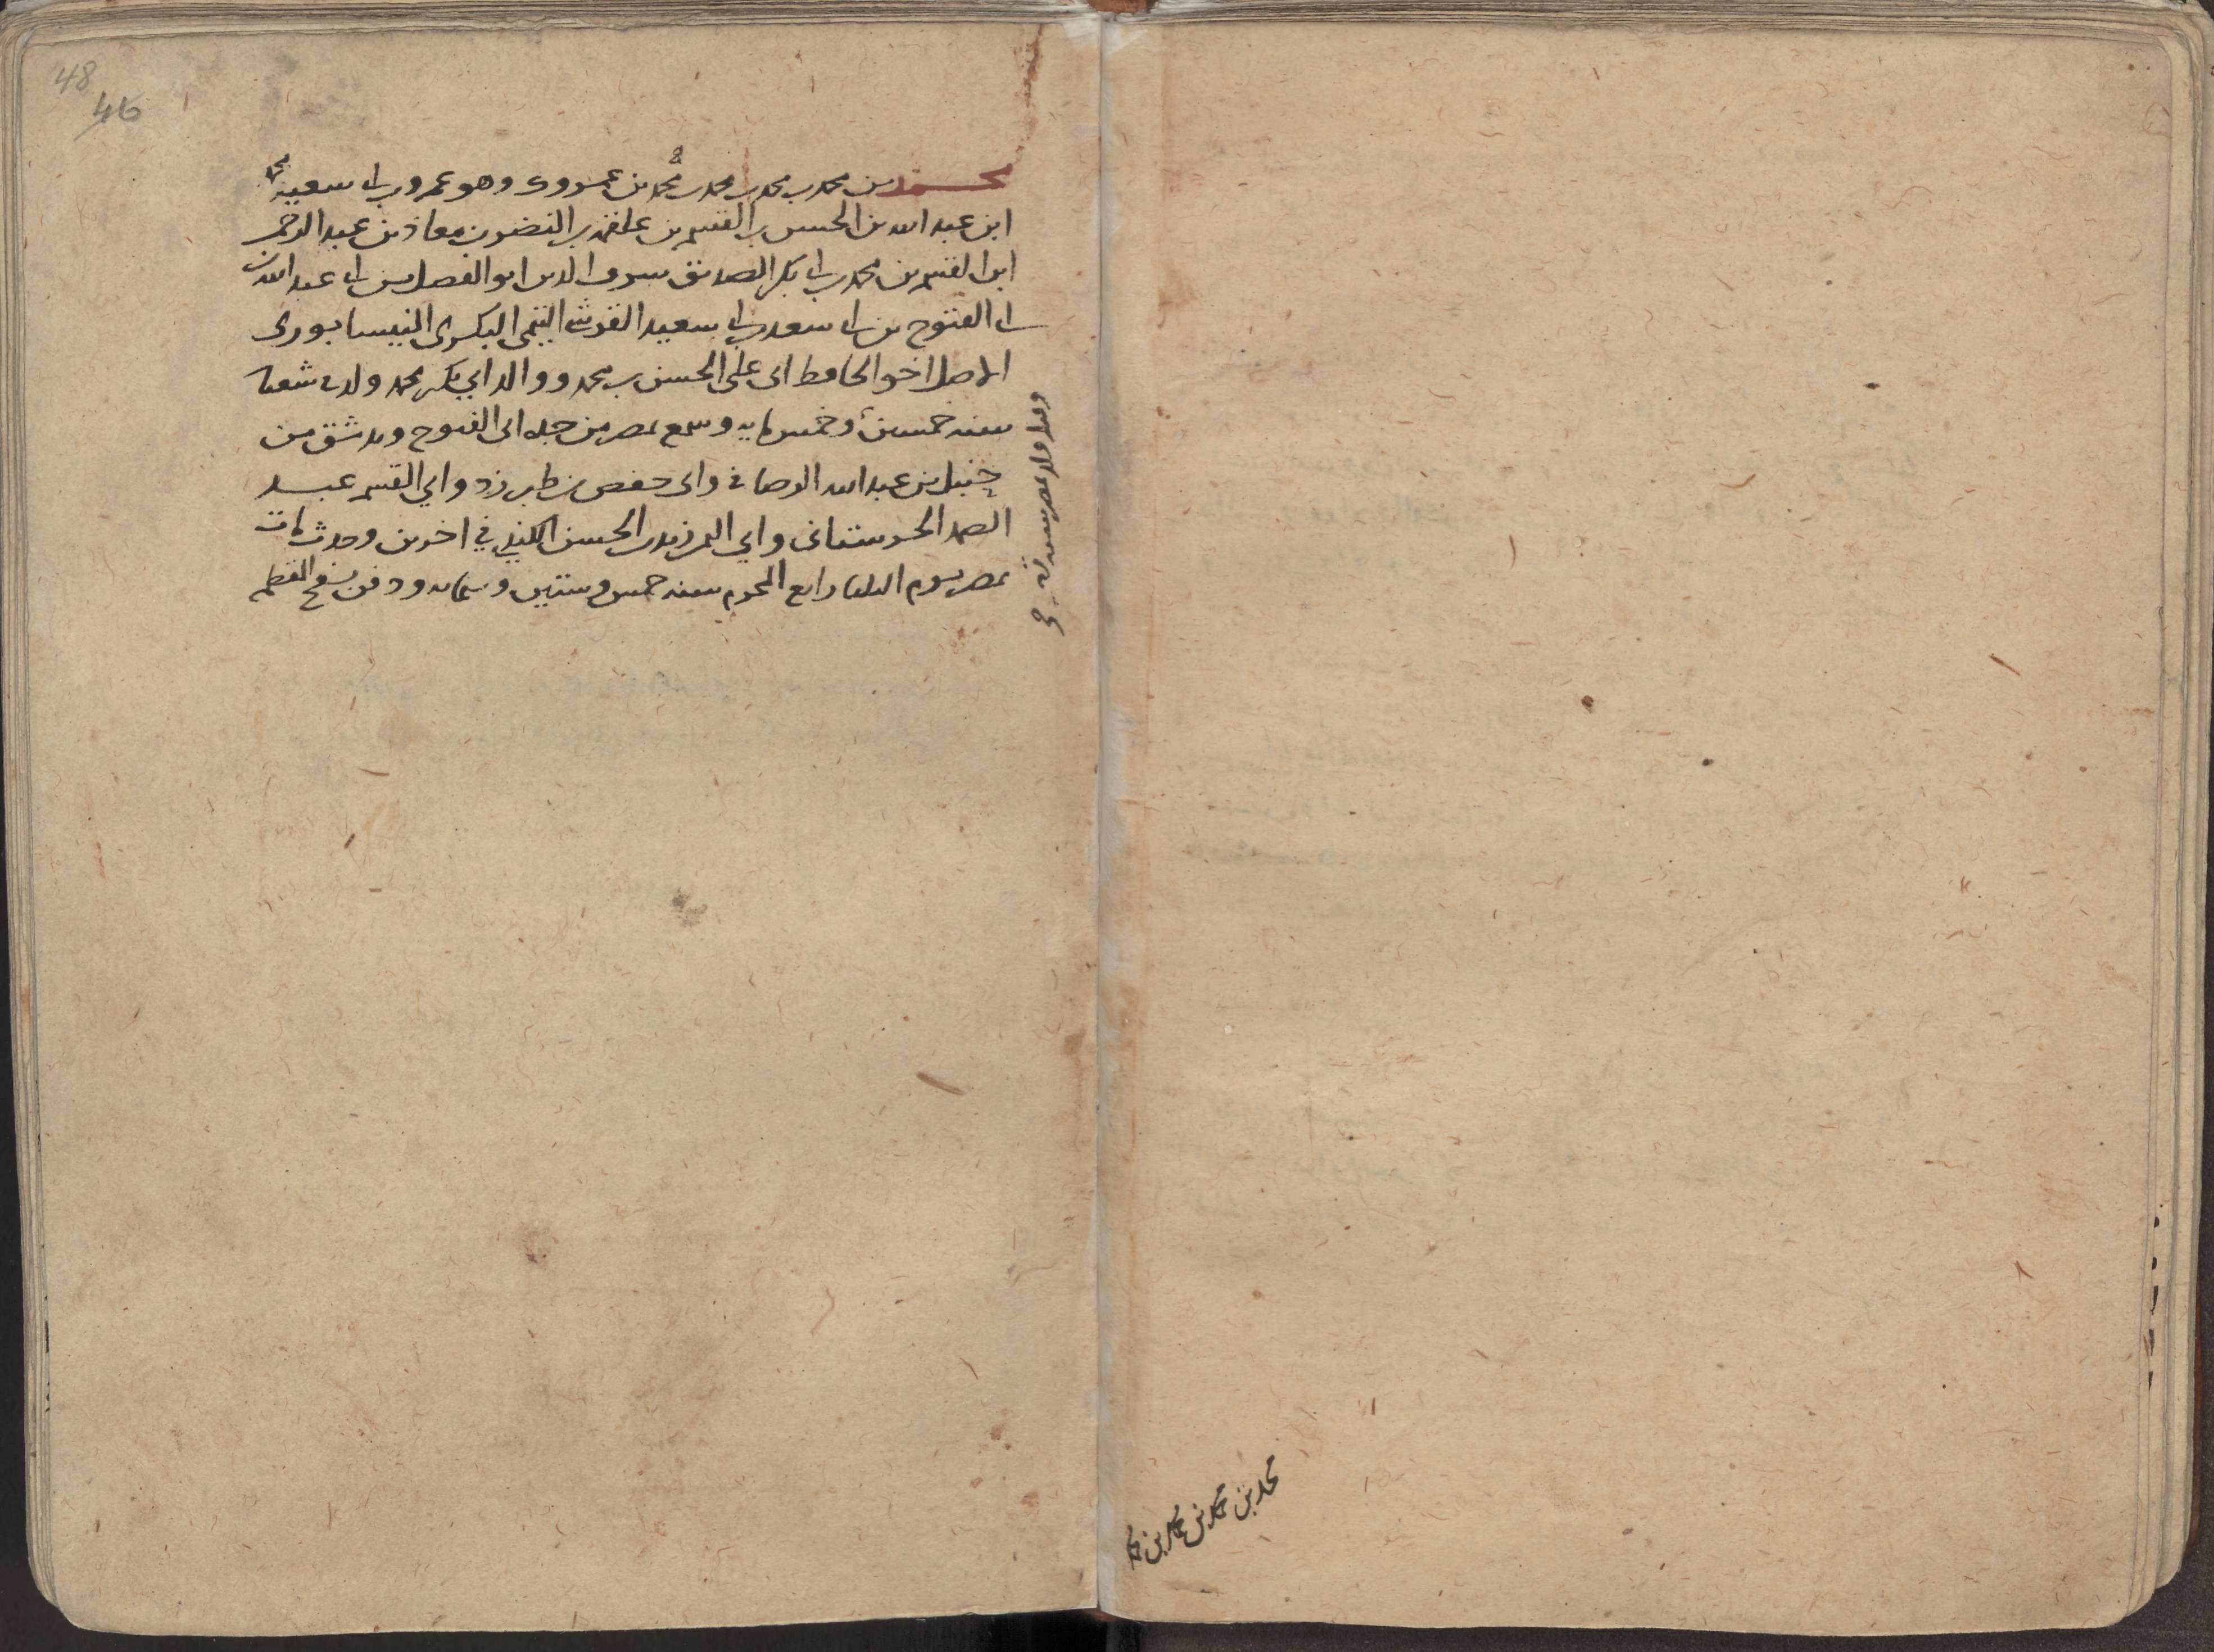 محمد بن محمد بن محمد بن محمد بن محمد بن عمروك وهو عمرو بن ابى سعيد
ابن عبد الله بن الحسن بن القسم بن علقمه بن النضر بن معاذ بن عبد الرحمن
ابن القسم بن محمد بن ابى بكر الصديق شرف الدين ابو الفضل بن ابى عبد الله بن
ابى الفتوح بن ابى سعد بن ابى سعيد القرشى التيمى البكرى النيسابورى
الاصل اخو الحافظ ابى على الحسن بن محمد ووالد ابي بكر محمد ولد
سنه وخمس مايه وسمع بمصر من جده ابى الفتوح وبدشق من
حنبل بن عبد الله الرصافى وابى حفص بن طبرزد وابي القسم عبد
الصمد الحرستانى وابي اليمن زيد بن الحسن الكندي في اخرين وحدث مات
بمصر يوم الثلثا رابع المحرم سنه خمس وستين وستمايه ودفن بسفح المقطم
محمد بن محمد بن محمد بن محمد
48
46